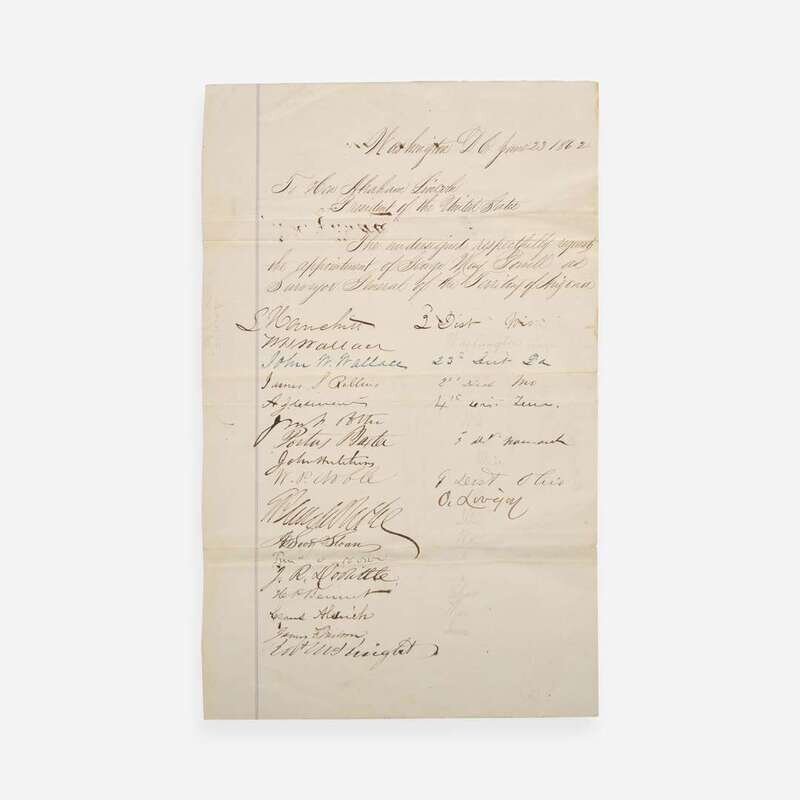 Washington D C June 23 1862
To Hon Abraham Lincoln
President of the United States
The undersigned respectfully request
the appointment of George May Powell as
Surveyor General of the Territory of Arizona
L Hanchett 2 Dist Wis
W H Wallace
John W. Wallace 23d Dist Pa
James S Rollins 2d Dist Mo
A J Clements 4th Dist Tenn.
Jno F Potter
Portus Baxter 3 Dist
John Hutchins
W. P. Noble 9 Dist Ohio
O. Lovejoy
A Scott Sloan
J. R. Doolittle
H P Bennet
Cyrus Aldrich
James
Robt McKnight